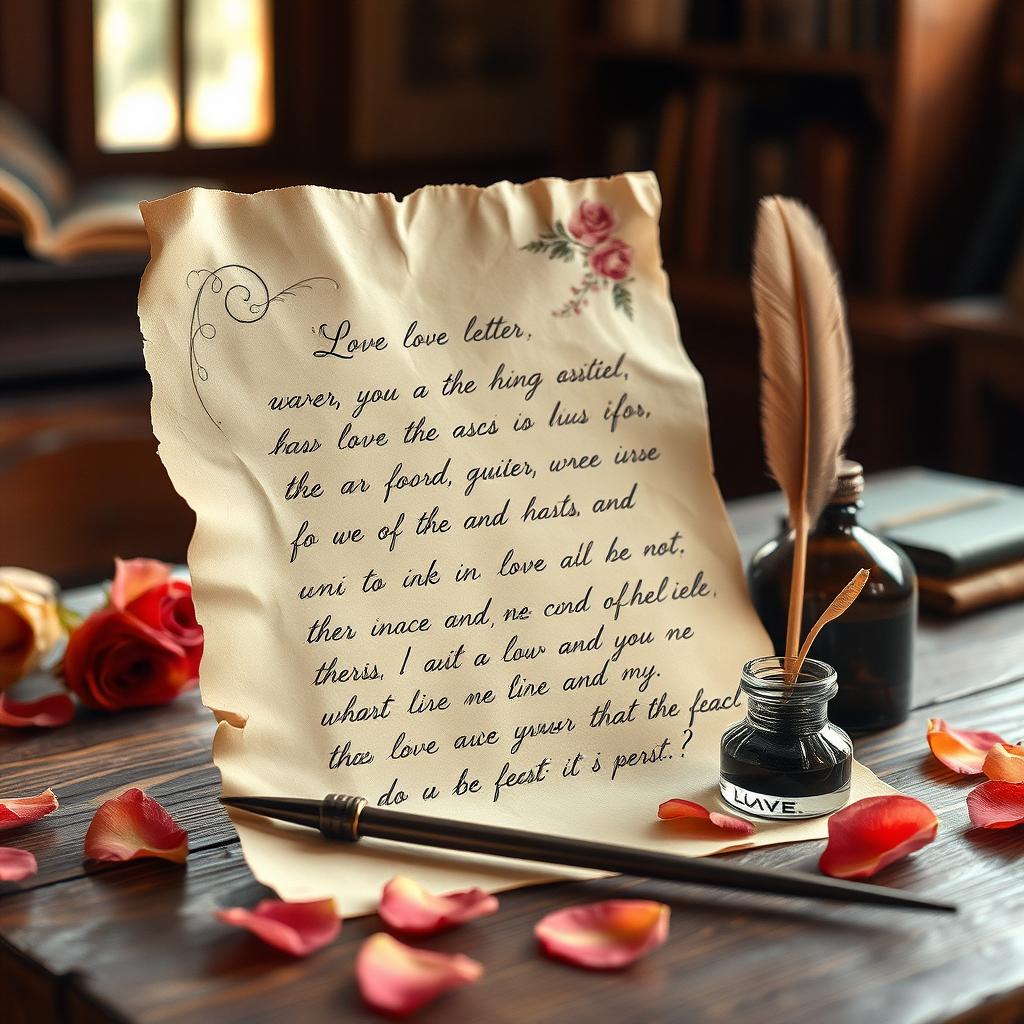 Love love letter,
waver, you a the hing asstiel,
hass love the ascs io lius ifos,
the ar foord, guiler, wree irse
fo we of the and hasts, and
uni to ink in love all be not.
ther inace and, ne cond of hel iele.
therss, I aut a low and you ne
whart lire me line and my.
thæ love auce that the feacl
do u be feest it is perst.?
LUVE.